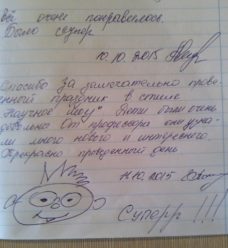 всё очень понравилось.
Было супер.
10.10.2015
Спасибо за замечательно прове-
дённый праздник в стиле
"Научное Шоу". Дети очень
довольны. От профессора они узна-
ли много нового и интересного.
Прекрасно проведенный день
10.2015
Суперр!!!